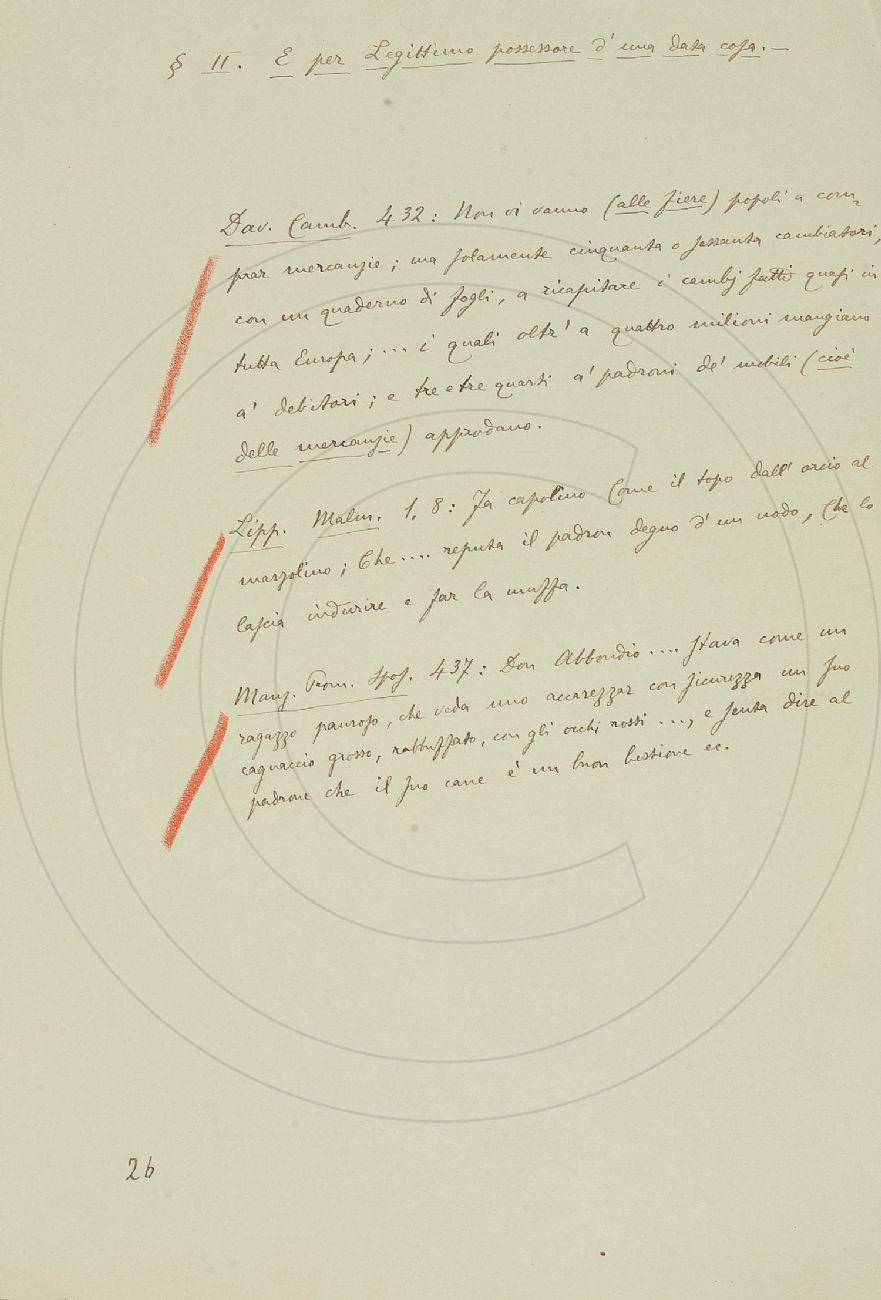 § II. E per Legittimo possessore d'una data cosa.—
Dav. Camb. 432: Non vi vanno (alle fiere) popoli a com-
prar mercanzie; ma solamente cinquanta o sessanta cambiatori,
con un quaderno di fogli, a ricapitare i cambj fatti quasi in
tutta Europa; ... i quali oltr' a quattro milioni mangiano
a' debitori; e tre e tre quarti a' padroni de' mobili (cioè
delle mercanzie) approdano.
Lipp. Malm. 1, 8: Fa capolino Come il topo dall' orcio al
marzolino; Che .... reputa il padron degno d'un nodo, Che lo
lascia indurire e far la muffa.
Manz. Prom. Spos. 437: Don Abbondio .... stava come un
ragazzo pauroso, che veda uno accarezzar con sicurezza un suo
cagnaccio grosso, rabbuffato, con gli occhi rossi ..., e senta dire al
padrone che il suo cane è un buon bestione ec.
26